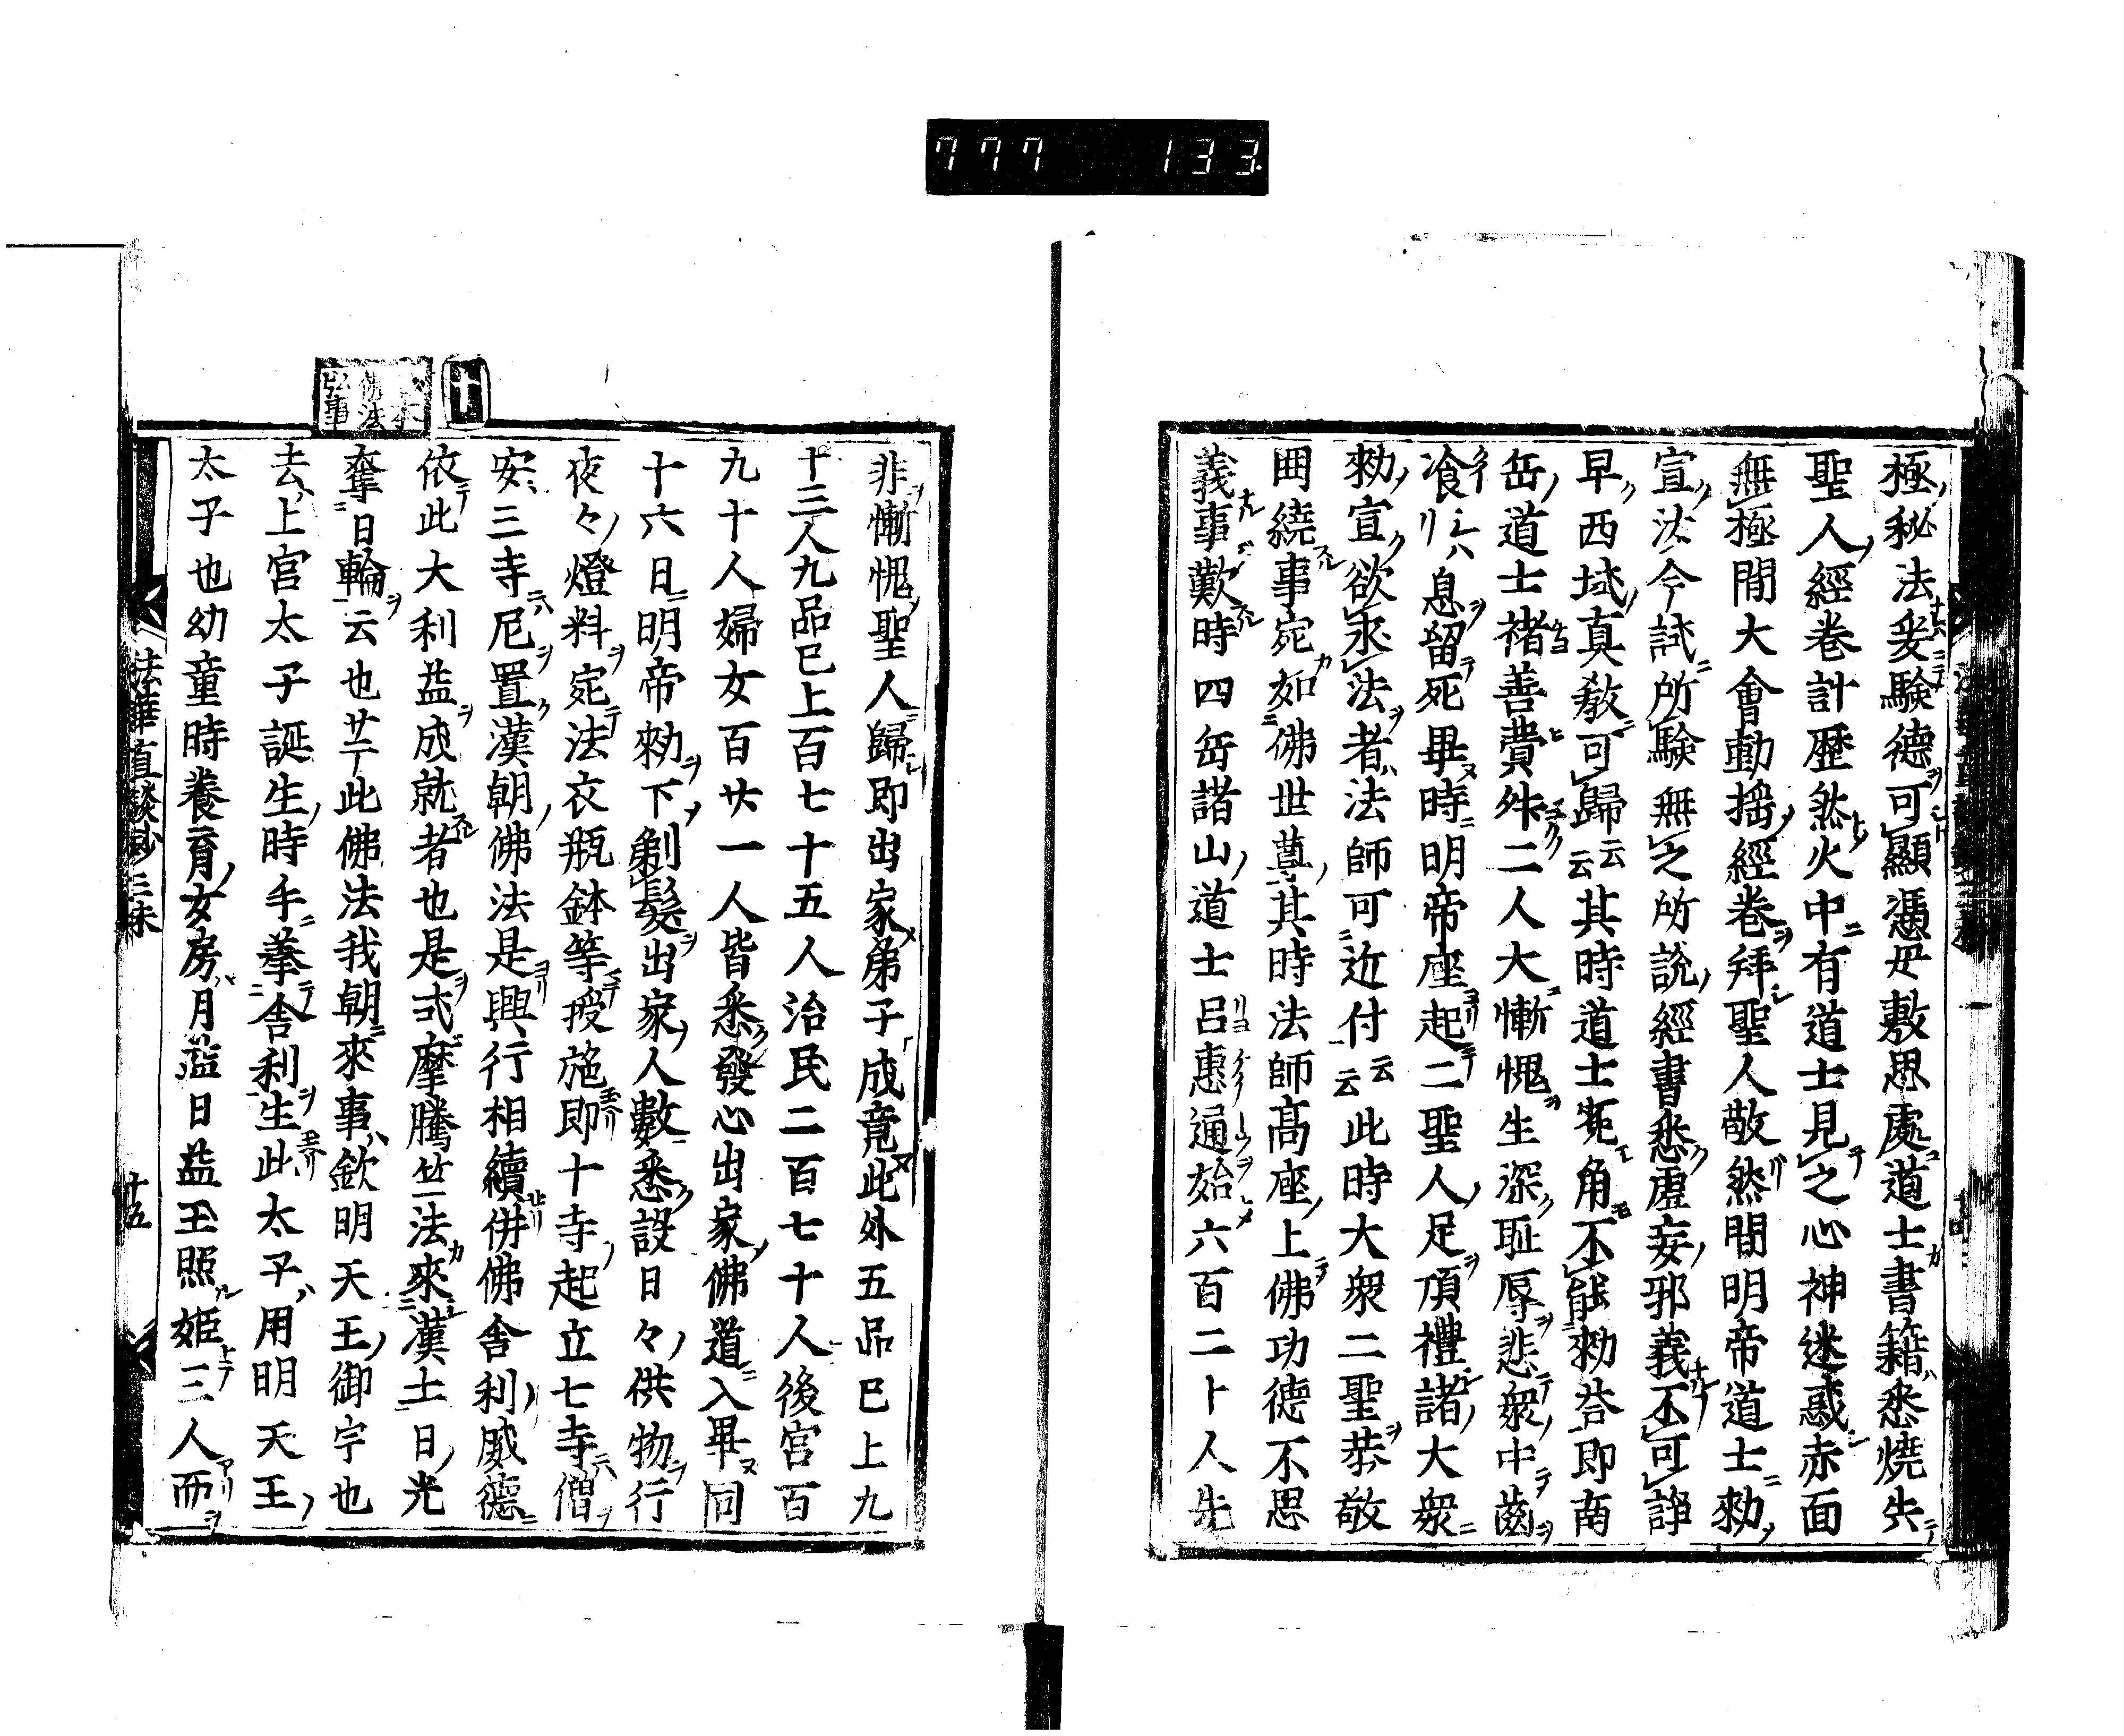 777 133
極秘法爰驗德可顯憑思敷思處道士書籍悉燒失
聖人經卷計歷然火中有道士見之心神迷惑赤面
無極間大會動搖經卷拜聖人敬然間明帝道士勅
宣汝今試所驗無之所說經書悉虛妄邪義不可諍
早西域真敎可歸云云其時道士寃角不能勅荅即南
岳道士褚善費殊二人大慚愧生深耻辱悲衆中齒
飡シハリ息留死畢時明帝座起二聖人足頂禮諸大衆
勅宣欲承法者法師可近付云云此時大衆二聖恭敬
囲繞事宛如佛世尊其時法師髙座上佛功德不思
義事歎時四岳諸山道士呂惠通始六百二十人先
非慚愧聖人歸即出家弟子成竟此外五品已上九
十三人九品已上百七十五人治民二百七十人後宮百
九十人婦女百廿一人皆悉發心出家佛道入畢同
十六日明帝勅下剃髮出家人數悉設日々供物行
夜々燈料定法衣瓶鉢等授施即十寺起立七寺僧
安三寺尼置漢朝佛法是興行相續併佛舍利威德
依此大利益成就者也是弐摩騰竺法來漢土日光
奪日輪云也廿二此佛法我朝來事欽明天王御宇也
去上官太子誕生時手拳舍利生此太子用明天王
太子也幼童時養育女房月益日益玉照姬三人而
十
佛法
弘事
法華直談鈔二末
十五